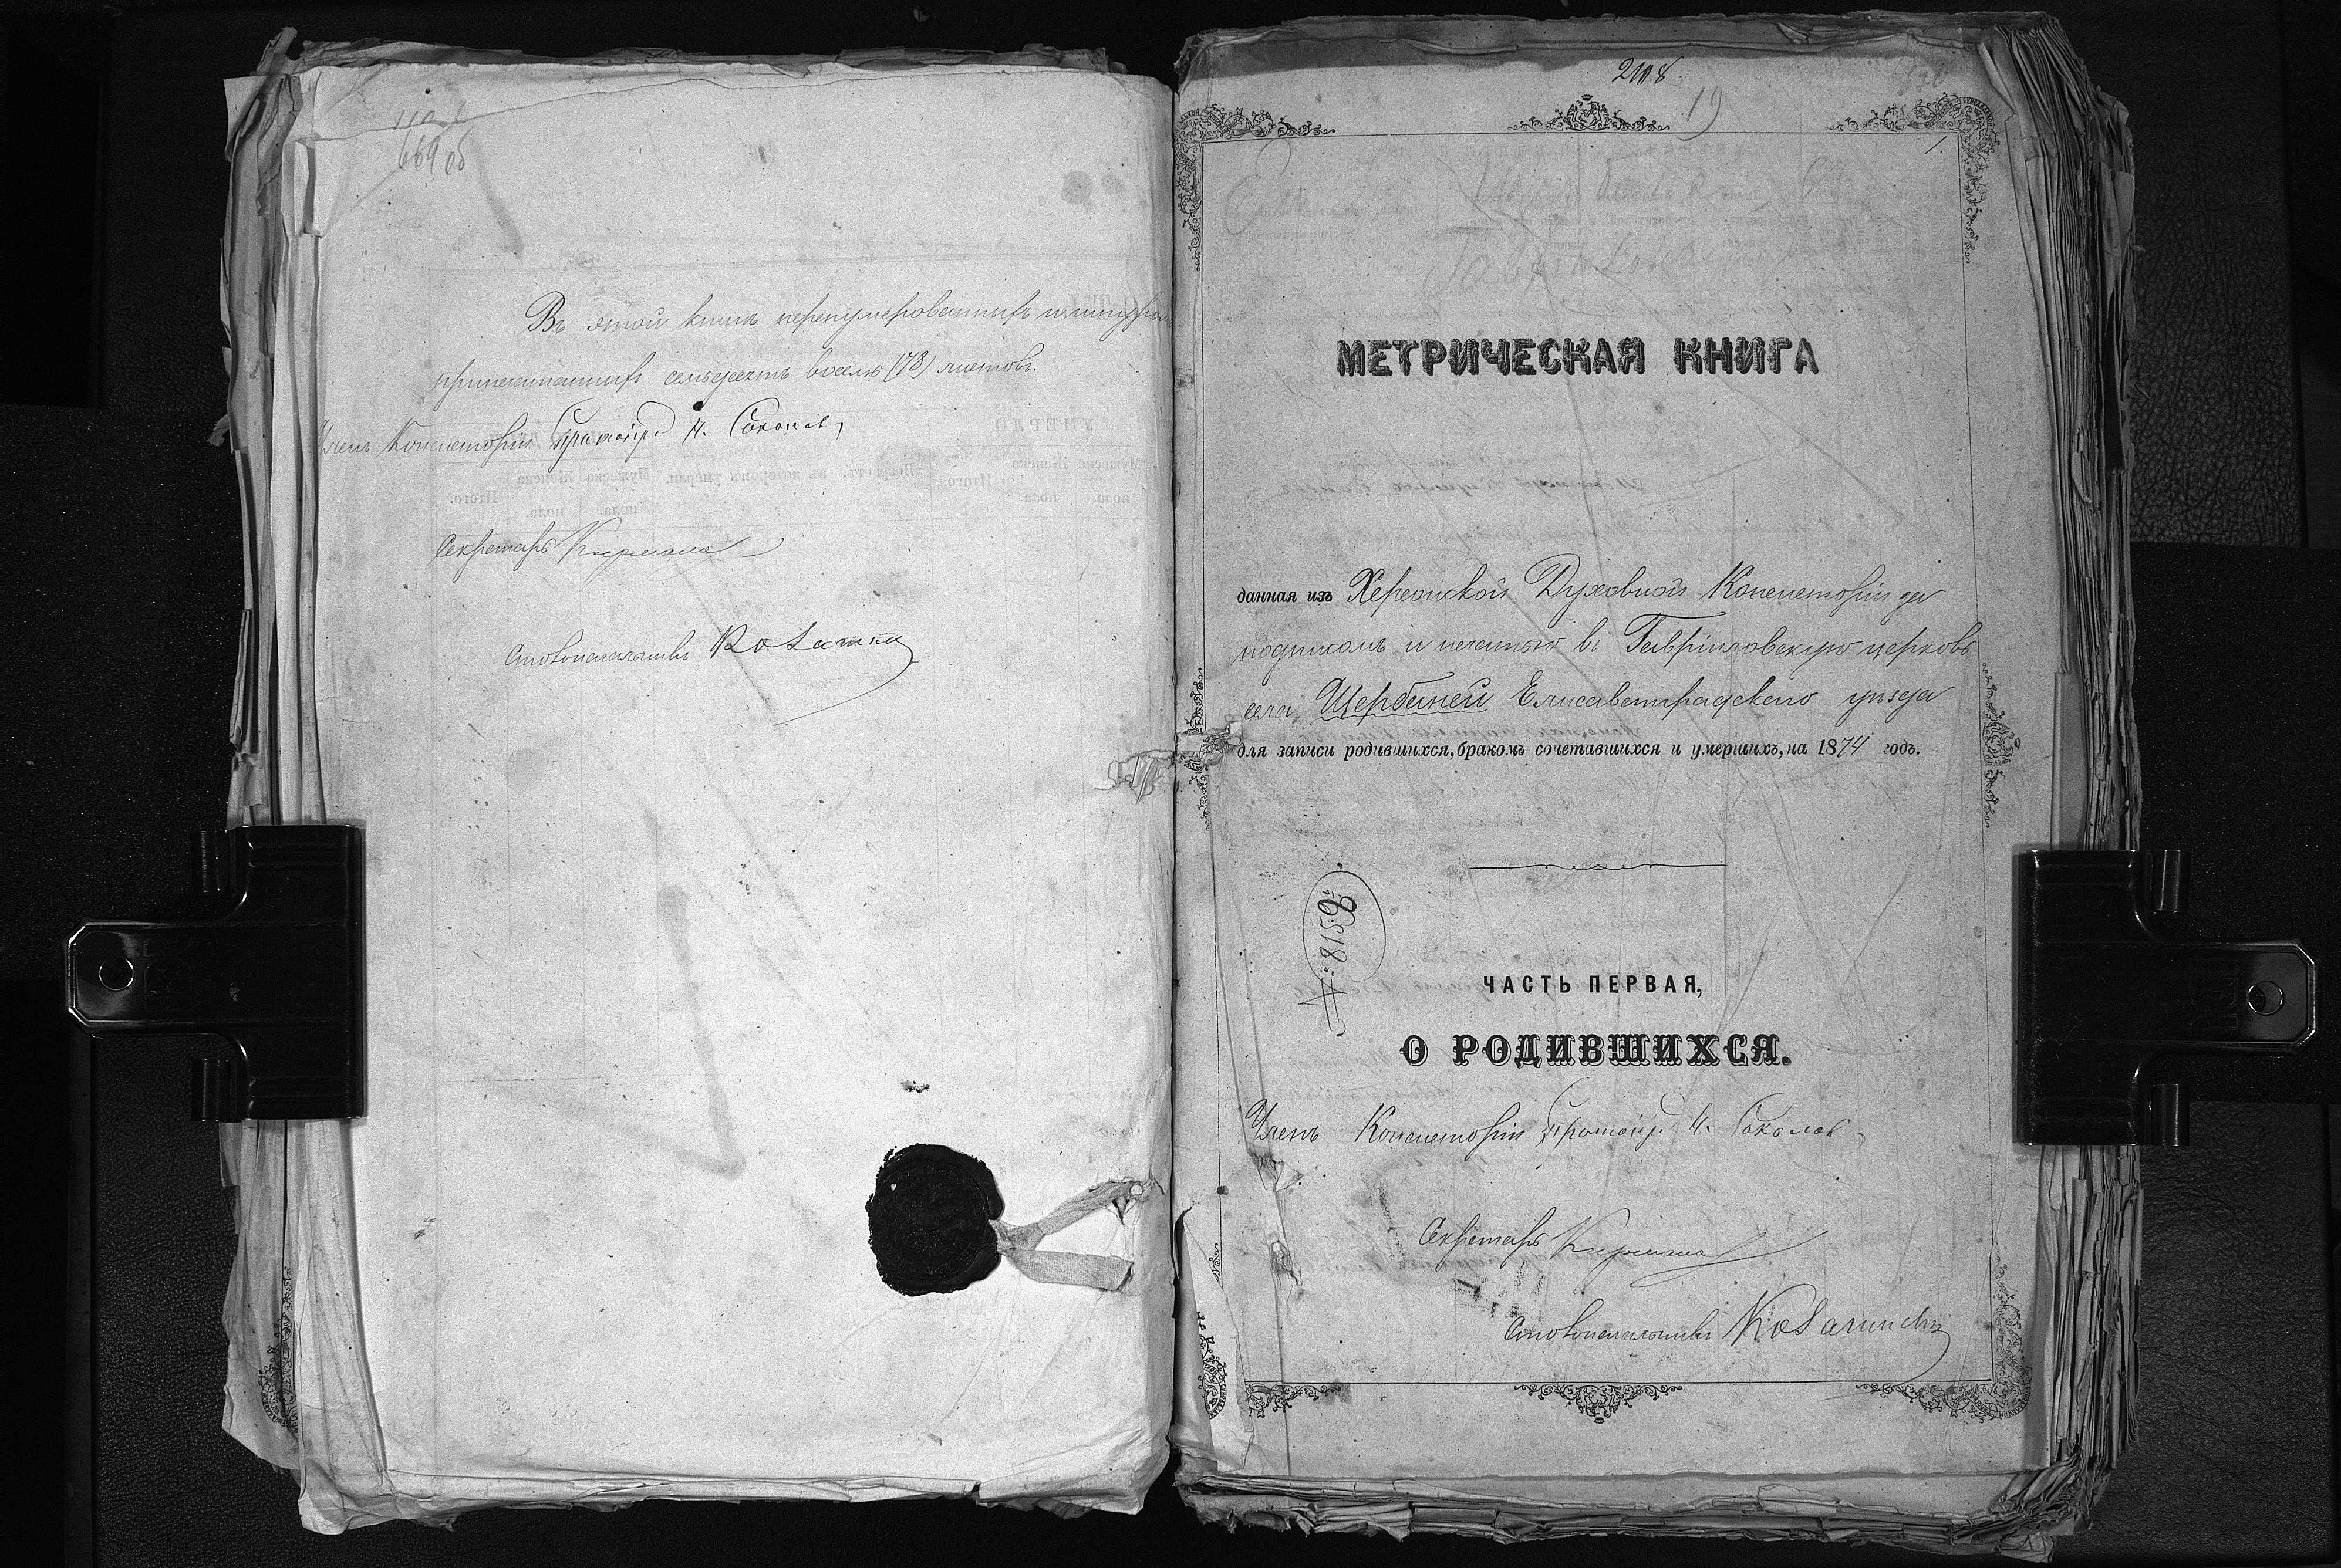 669 об
Въ этой книгѣ перенумерованныхъ и шнуромъ
припечатанныхъ семьдесятъ восемь (78) листовъ.
Членъ Консисторіи Протоіер. Н. Соколовъ
Секретарь
Столоначальникъ
2118
19
1.
МЕТРИЧЕСКАЯ КНИГА
данная изъ Херсонской Духовной Консисторіи за
подписомъ и печатью въ Гавріиловскую церковь
села Щербаней Елисаветградскаго уѣзда
для записи родившихся, бракомъ сочетавшихся и умершихъ, на 1874 годъ.
ЧАСТЬ ПЕРВАЯ,
О РОДИВШИХСЯ.
Членъ Консисторіи Протоіер. Н. Соколовъ
Секретарь
Столоначальникъ